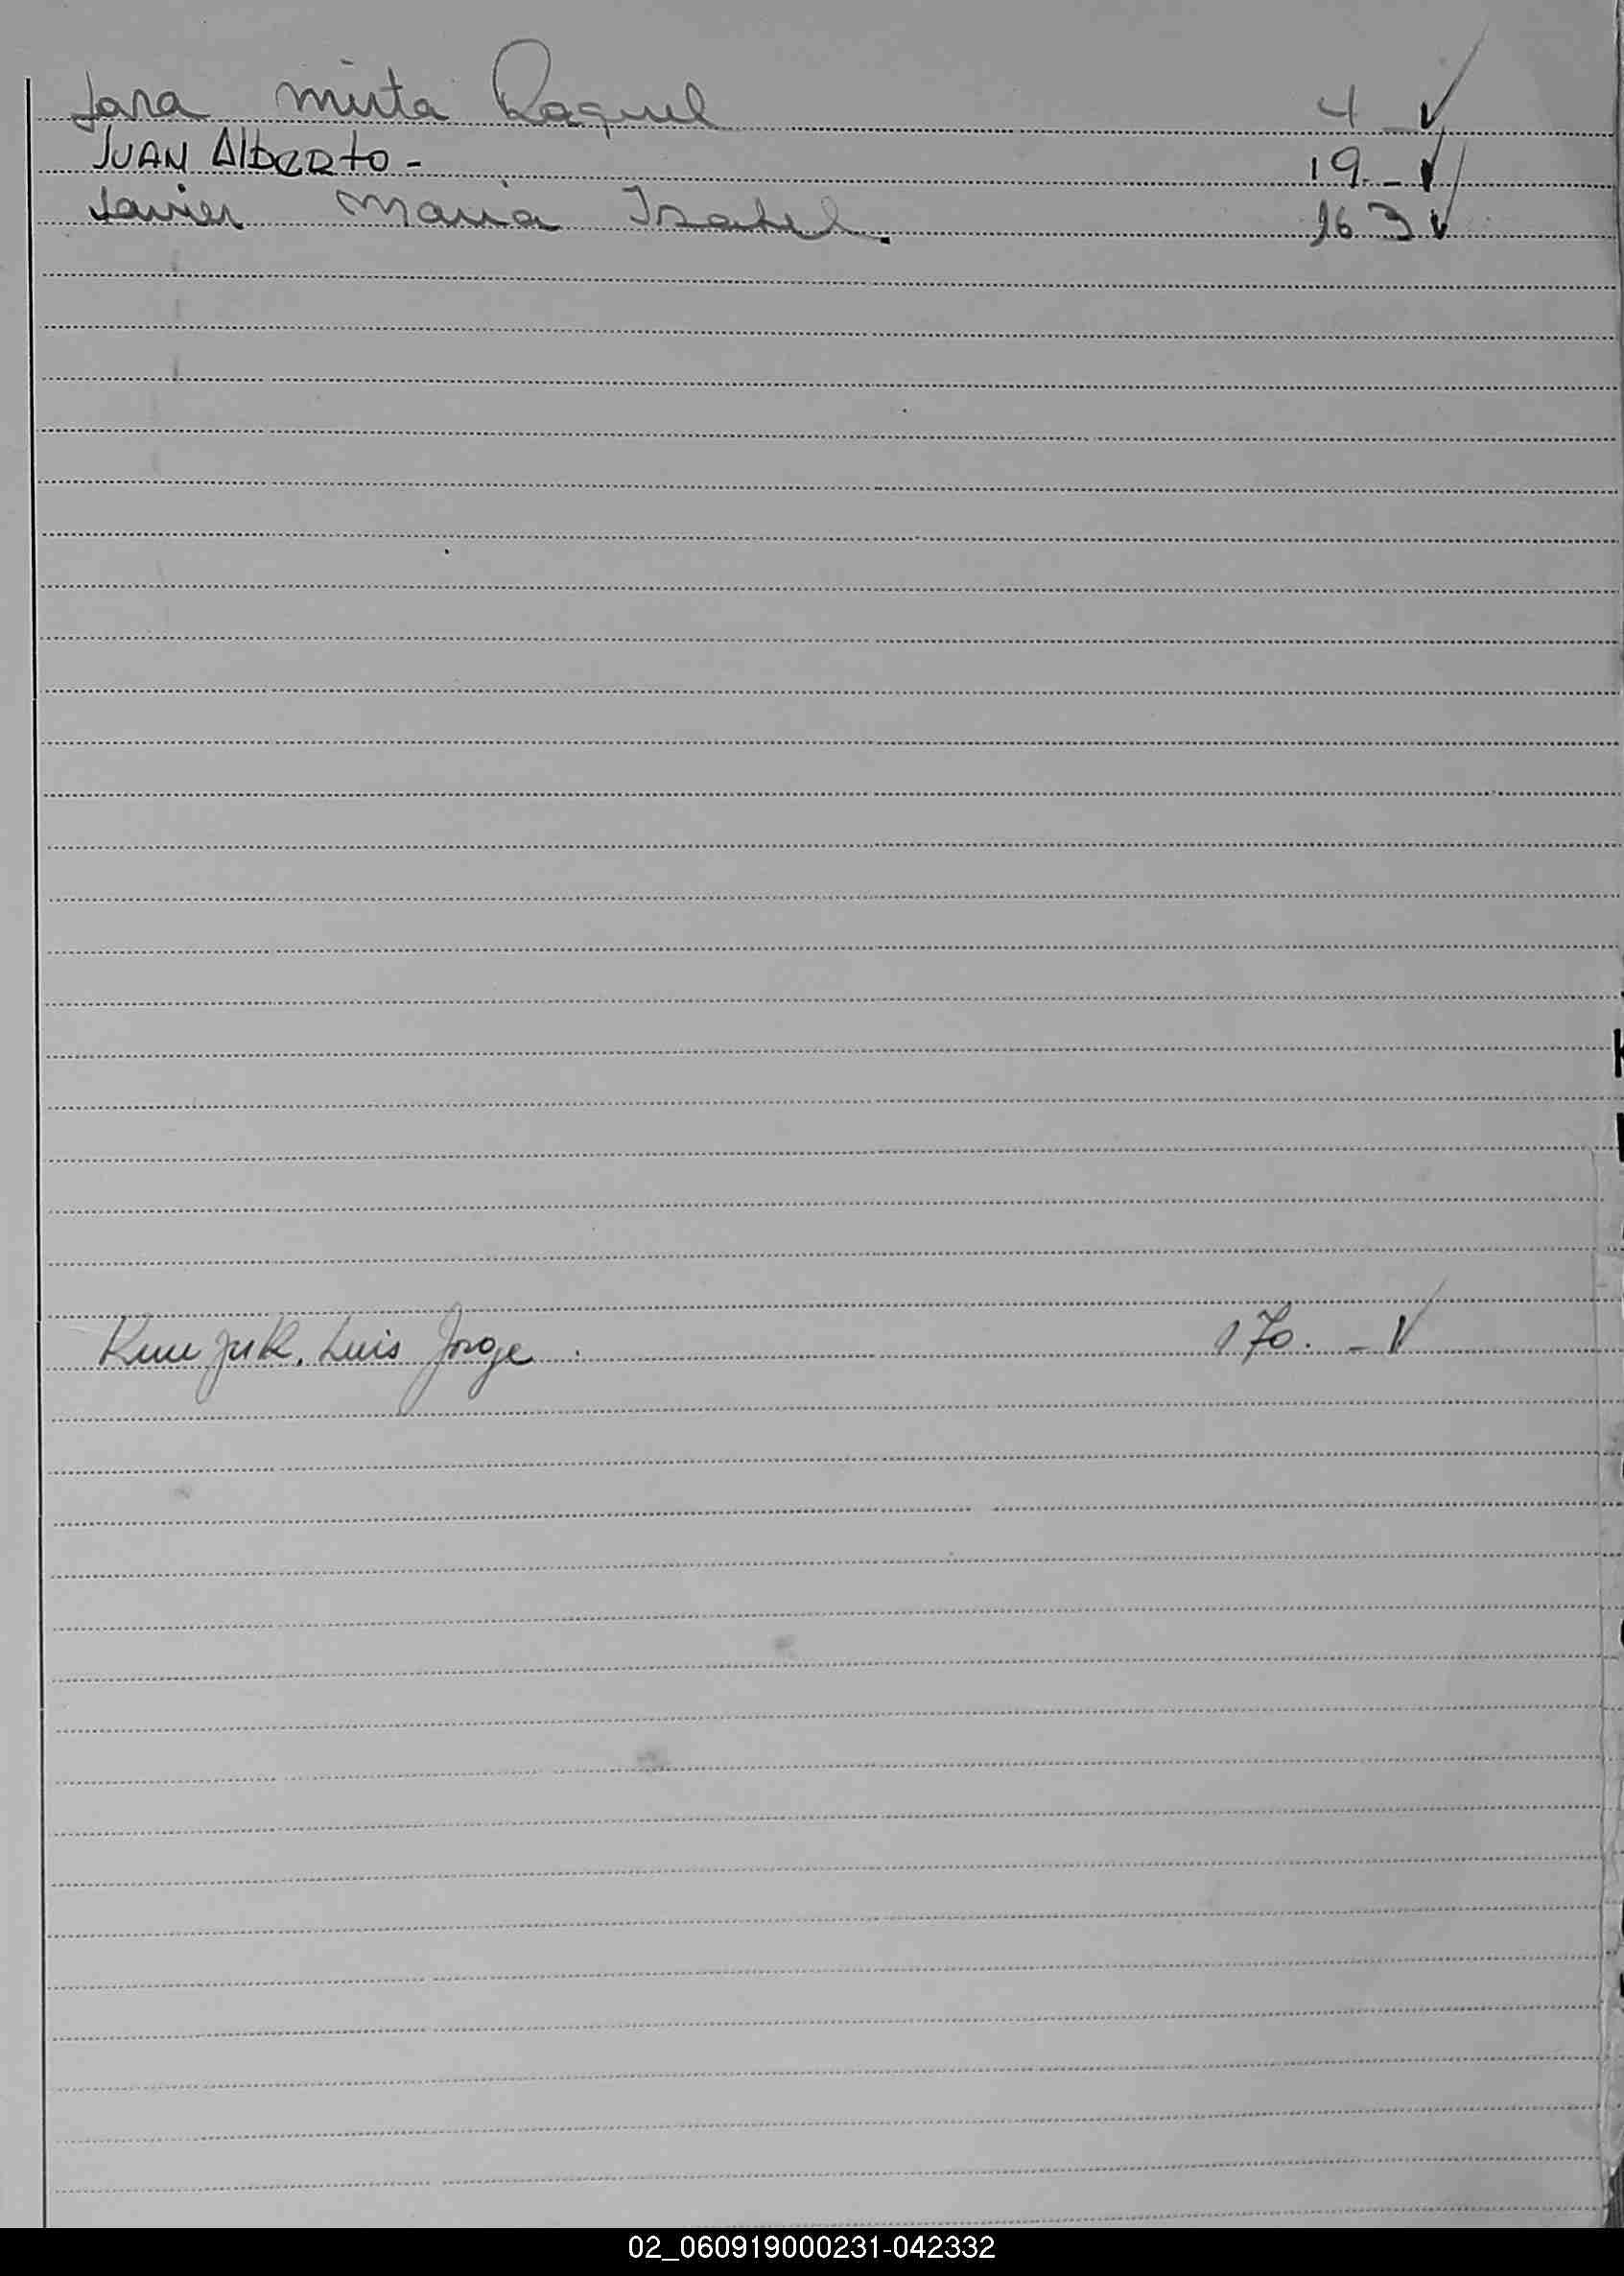 Jara Mirta Raquel 4 - ✓
JUAN Alberto - 19. - ✓
Javier Maria Isabel. 163 ✓
Luis Jorge. 170. - ✓
02_060919000231-042332